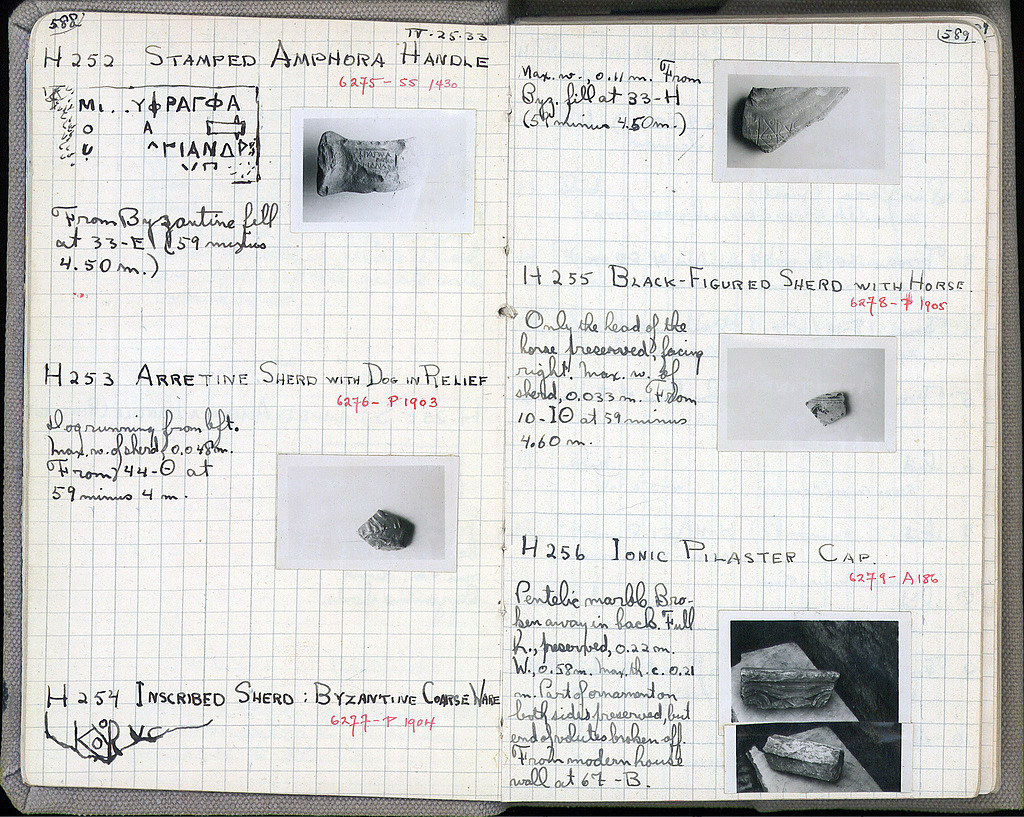 588
IV-25-33
H 252 STAMPED AMPHORA HANDLE
6275-SS 1430
ΜΙ..ΥΦΡΑΓΦΑ
Ο Α
ΓΙΑΝΔ
From Byzantine fill
at 33-E (59 minus
4.50 m.)
H 253 ARRETINE SHERD WITH DOG IN RELIEF
6276-P 1903
Dog running from left.
Max. w. of sherd, 0.048 m.
From 44-Θ at
59 minus 4 m.
H 254 INSCRIBED SHERD : BYZANTINE COARSE WARE
6277-P 1904
589
Max. w., 0.11 m. From
Byz. fill at 33-H
(59 minus 4.50 m.)
H 255 BLACK-FIGURED SHERD WITH HORSE.
6278-P 1905
Only the head of the
horse preserved, facing
right. Max. w. of
sherd, 0.033 m. From
10-ΙΘ at 59 minus
4.60 m.
H 256 IONIC PILASTER CAP.
6279-A 186
Pentelic marble. Bro-
ken away in back. Full
h., preserved, 0.22 m.
W., 0.58 m. Max. th. c. 0.21
m. Part of ornament on
both sides preserved, but
end of volutes broken off.
From modern house
wall at 67-B.